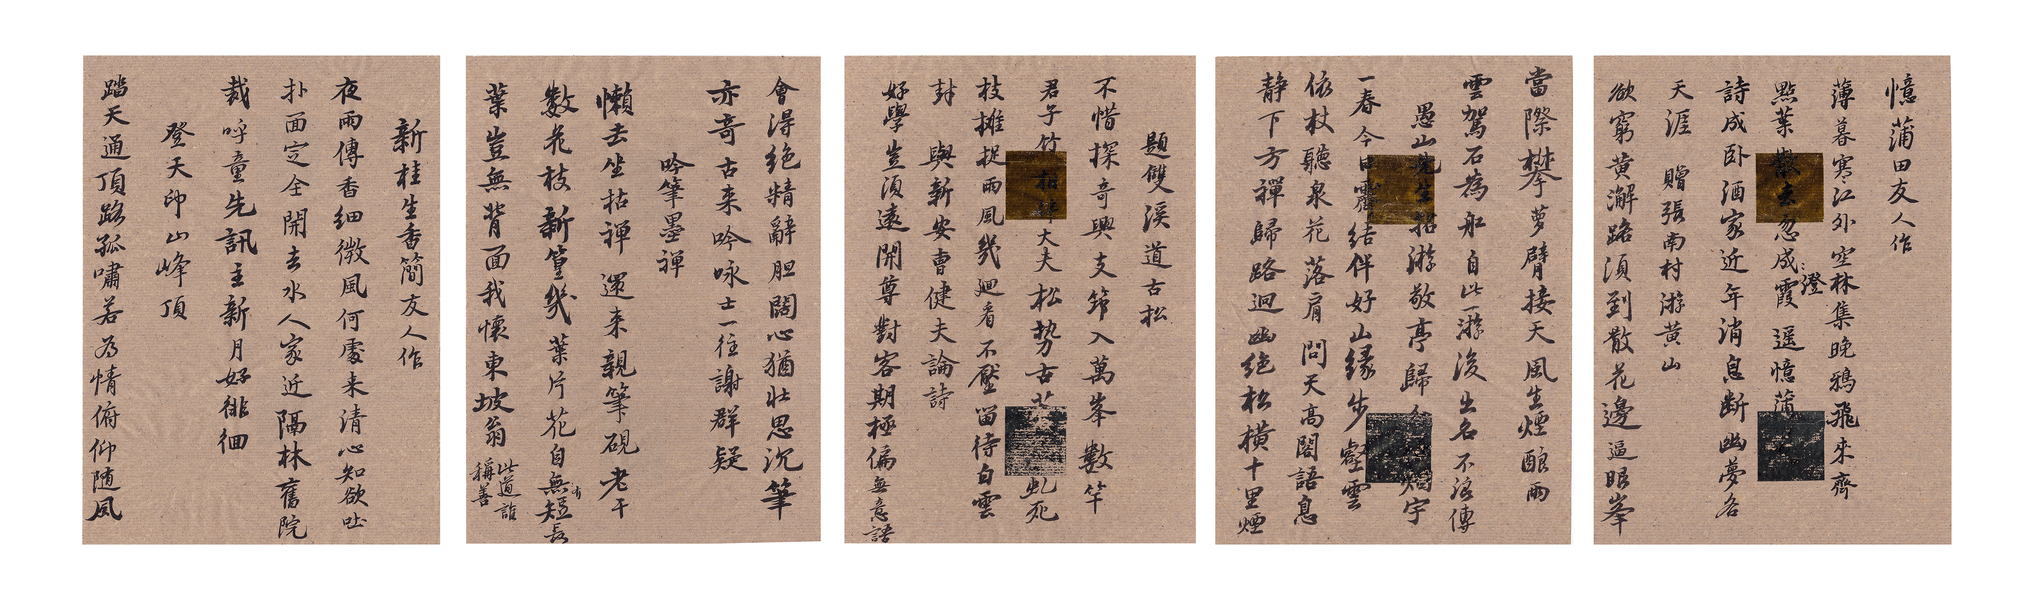 憶蒲田友人作
薄暮寒江外空林集晚鴉飛來齊
點葉散去忽成霞遥憶蒲
澄
詩成卧酒家近年消息断幽夢各
天涯　贈張南村游黄山
欲窮黄澥路須到散花邊逼眼峯
當際攀蘿臂接天風生煙酿雨
雲駕石為舡自此一游後山名不浪傳
愚山先生招游敬亭歸
宇
一春今日霽結伴好山緣步壑雲
依杖聽泉花落肩問天高閣語息
静下方禪歸路迴幽絕松横十里煙
題雙溪道古松
不惜探奇興支筇入萬峯數竿
君子竹招大夫松势古
虬死
枝摊捉雨風幾迴看不壓留待白雲
封　與新安曺健夫論詩
好學豈須遠開尊對客期極偏無意語
會得绝精辭胆闊心猶壮思沉筆
亦奇古来吟咏士一往謝群疑
吟筆墨禪
懶去坐拈禪還来親筆硯老干
數花枝新篁幾葉片花自無短長
葉豈無背面我懷東坡翁
此道誰
稱善
新桂生香簡友人作
夜雨傳香細微風何處来清心知欲吐
扑面定全開去水人家近隔林舊院
裁呼童先訊主新月好徘徊
登天印山峰頂
踏天通頂路孤嘯若為情俯仰随風